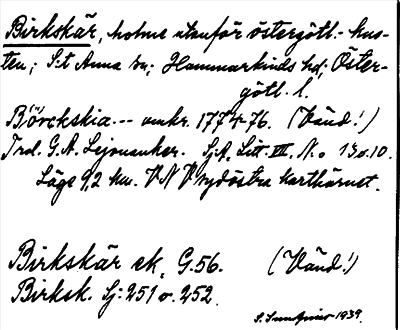 Birkskär, holme utanför östergötl.- kus-
ten; S:t Anna sn; Hammarkinds hd; Öster-
götl. l.
Börckskia.-- omkr. 1774-76. (Vänd!)
Trol. G.A. Lejonanker. Sj.A. Litt. VII. N:o 13 o. 10.
Läge 9,2 km. V N V sydöstra karthörnet.
Birkskär ek, G. 56. (Vänd!)
Birksk. Sj: 251 o. 252.
1939.